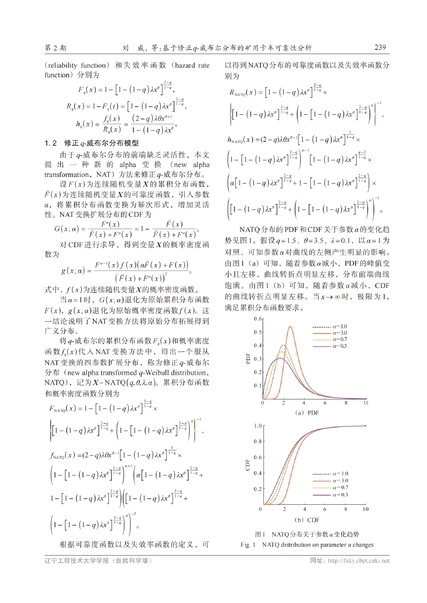 第 2 期
刘　威，等：基于修正q-威布尔分布的矿用卡车可靠性分析
239
（reliability function）和失效率函数（hazard rate
function）分别为
F_q(x)=1-[1-(1-q)λx^θ]^{(2-q)/(1-q)},
R_q(x)=1-F_q(t)=[1-(1-q)λx^θ]^{(2-q)/(1-q)},
h_q(x)=f_q(x)/R_q(x)=(2-q)λθx^{θ-1}/(1-(1-q)λx^θ)。
1.2　修正 q-威布尔分布模型
由于 q-威布尔分布的前端缺乏灵活性，本文
提出一种新的 alpha 变换（new alpha
transformation，NAT）方法来修正q-威布尔分布。
设F(x)为连续随机变量X的累积分布函数，
F̄(x)为连续随机变量X的可靠度函数，引入参数
α，将累积分布函数变换为矩次形式，增加灵活
性。NAT变换扩展分布的CDF为
G(x;α)=F^α(x)/(F̄(x)+F^α(x))=1-F̄(x)/(F̄(x)+F^α(x))。
对CDF进行求导，得到变量X的概率密度函
数为
g(x,α)=F^{α-1}(x)f(x)(αF̄(x)+F(x))/(F̄(x)+F^α(x))^2，
式中，f(x)为连续随机变量X的概率密度函数。
当α=1时，G(x;α)退化为原始累积分布函数
F(x)，g(x,α)退化为原始概率密度函数f(x)。这
一结论说明了NAT变换方法将原始分布拓展得到
广义分布。
将q-威布尔的累积分布函数F_q(x)和概率密度
函数f_q(x)代入NAT变换方法中，得出一个服从
NAT变换的四参数扩展分布，称为修正q-威布尔
分布（new alpha transformed q-Weibull distribution，
NATQ），记为X~NATQ(q,θ,λ,α)。累积分布函数
和概率密度函数分别为
F_NATQ(x)=1-[1-(1-q)λx^θ]^{(2-q)/(1-q)}×
{[1-(1-q)λx^θ]^{(2-q)/(1-q)}+(1-[1-(1-q)λx^θ]^{(2-q)/(1-q)})^α}^{-1},
f_NATQ(x)=(2-q)λθx^{θ-1}[1-(1-q)λx^θ]^{1/(1-q)}×
(1-[1-(1-q)λx^θ]^{(2-q)/(1-q)})^{α-1}(α[1-(1-q)λx^θ]^{(2-q)/(1-q)}+
1-[1-(1-q)λx^θ]^{(2-q)/(1-q)})([1-(1-q)λx^θ]^{(2-q)/(1-q)}+
(1-[1-(1-q)λx^θ]^{(2-q)/(1-q)})^α)^{-2}。
根据可靠度函数以及失效率函数的定义，可
以得到NATQ分布的可靠度函数以及失效率函数分
别为
R_NATQ(x)=[1-(1-q)λx^θ]^{(2-q)/(1-q)}×
{[1-(1-q)λx^θ]^{(2-q)/(1-q)}+(1-[1-(1-q)λx^θ]^{(2-q)/(1-q)})^α}^{-1},
h_NATQ(x)=(2-q)λθx^{θ-1}[1-(1-q)λx^θ]^{1/(1-q)}×
NATQ分布的PDF和CDF关于参数α的变化趋
势见图1。假设q=1.5，θ=3.5，λ=0.1，以α=1为
对照，可知参数α对曲线的左侧产生明显的影响。
由图1（a）可知，随着参数α减小，PDF的峰值变
小且左移，曲线转折点明显左移，分布前端曲线
饱满。由图1（b）可知，随着参数α减小，CDF
的曲线转折点明显左移。当x→∞时，极限为1，
满足累积分布函数要求。
PDF
0.6
0.5
0.4
0.3
0.2
0.1
0
2
4
6
8
10
α=1.0
α=3.0
α=0.7
α=0.5
（a）PDF
CDF
1.0
0.8
0.6
0.4
0.2
0
2
4
6
8
10
α=1.0
α=3.0
α=0.7
α=0.5
（b）CDF
图1　NATQ分布关于参数α变化趋势
Fig. 1　NATQ distribution on parameter α changes
辽宁工程技术大学学报（自然科学版）